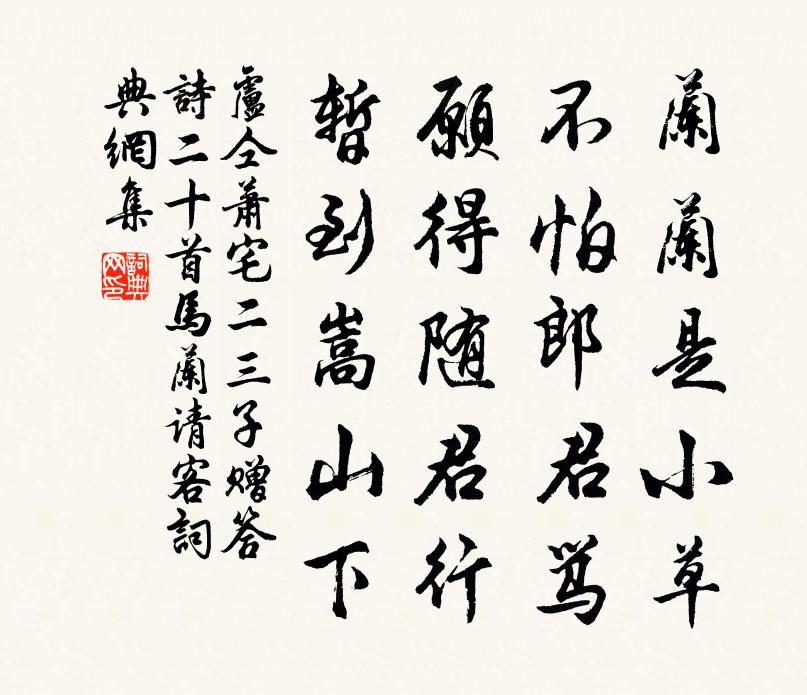 蘭蘭是小草
不怕郎君罵
願得随君行
暫到嵩山下
盧仝蕭宅二三子赠答
詩二十首馬蘭请客詞
典網集
詞典
网印